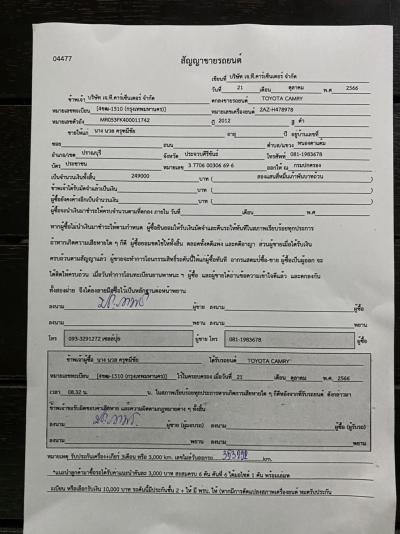 04477
สัญญาขายรถยนต์
เขียนที่ บริษัท เจ.ที.คาร์เซ็นเตอร์ จำกัด
วันที่ 21 เดือน ตุลาคม พ.ศ. 2566
ข้าพเจ้า บริษัท เจ.ที.คาร์เซ็นเตอร์ จำกัด ตกลงขายรถยนต์ TOYOTA CAMRY
หมายเลขทะเบียน (4ขฆ-1510 (กรุงเทพมหานคร)) หมายเลขเครื่องยนต์ 2AZ-H478978
หมายเลขตัวถัง MR053FK400011742 ปี 2012 สี ดำ
ขายให้แก่ นาง นวล อายุ ปี อยู่บ้านเลขที่
ซอย ถนน ตำบล/แขวง หนองตาแต้ม
อำเภอ/เขต ปราณบุรี จังหวัด ประจวบคีรีขันธ์ โทรศัพท์ 081-1983678
บัตร ประชาชน หมายเลข 3 7706 00306 69 6 ออกให้ ณ กรมปกครอง
เป็นจำนวนเงินทั้งสิ้น 249000 บาท ( สองแสนสี่หมื่นเก้าพันบาทถ้วน )
ข้าพเจ้าได้รับมัดจำแล้วเป็นเงิน บาท ( )
ผู้ซื้อยังคงค้างอีกเป็นจำนวนเงิน บาท ( )
ผู้ซื้อจะนำเงินมาชำระให้ครบจำนวนตามที่ตกลง ภายใน วันที่ เดือน พ.ศ.
หากผู้ซื้อไม่นำเงินมาชำระให้ตามกำหนด ผู้ซื้อยินยอมให้ริบเงินมัดจำและคืนรถให้ทันทีในสภาพเรียบร้อยทุกประการ
ถ้าหากเกิดความเสียหายใด ๆ ก็ดี ผู้ซื้อยอมชดใช้ให้ทั้งสิ้น ตลอดทั้งคดีแพ่ง และคดีอาญา ส่วนผู้ขายเมื่อได้รับเงิน
ครบถ้วนตามสัญญาแล้ว ผู้ขายจะทำการโอนกรรมสิทธิ์รถคันนี้ให้แก่ผู้ซื้อทันที อากรแสตมป์ซื้อ-ขาย ผู้ซื้อเป็นผู้ออก จะ
ได้ติดให้ครบถ้วน เมื่อวันทำการโอนทะเบียนยานพาหนะ ๆ ผู้ซื้อ และผู้ขายได้อ่านข้อความเข้าใจดีแล้ว และตกลงกัน
ทั้งสองฝ่าย จึงได้ลงลายมือชื่อไว้เป็นหลักฐานต่อหน้าพยาน
ลงนาม ผู้ขาย ลงนาม ผู้ซื้อ
ลงนาม พยาน ลงนาม พยาน
โทร 093-3291272 ผู้ขาย โทร 081-1983678 ผู้ซื้อ
ข้าพเจ้าผู้ซื้อ นาง นวล ได้รับรถยนต์ TOYOTA CAMRY
หมายเลขทะเบียน (4ขฆ-1510 (กรุงเทพมหานคร)) ไว้ในครอบครอง เมื่อวันที่ 21 เดือน ตุลาคม พ.ศ. 2566
เวลา 08.32 น. น. ในสภาพเรียบร้อยทุกประการหากเกิดการเสียหายใด ๆ ก็ดีหลังจากที่รับรถยนต์ ดังกล่าวมา
ข้าพเจ้าจะรับผิดชอบค่าเสียหาย และความผิดตามกฎหมายต่าง ๆ ทั้งสิ้น
ลงนาม ผู้ขาย (ผู้มอบรถ) ลงนาม ผู้ซื้อ (ผู้รับรถ)
ลงนาม พยาน ลงนาม พยาน
หมายเหตุ รับประกันเครื่อง+เกียร์ 3เดือน หรือ 3,000 km. เลขไมล์วันออกรถ km.
*แนะนำลูกค้ามาซื้อรถได้รับค่าแนะนำคันละ 3,000 บาท สะสมครบ 6 คัน คันที่ 6 ได้มอไซต์ 1 คัน พร้อมเล่มท
ะเบียน หรือเลือกรับเงิน 10,000 บาท รถคันนี้มีประกันชั้น 2 + ให้ มี พรบ. ให้ (หากมีการดัดแปลงสภาพเครื่องยนต์ หมดรับประกัน